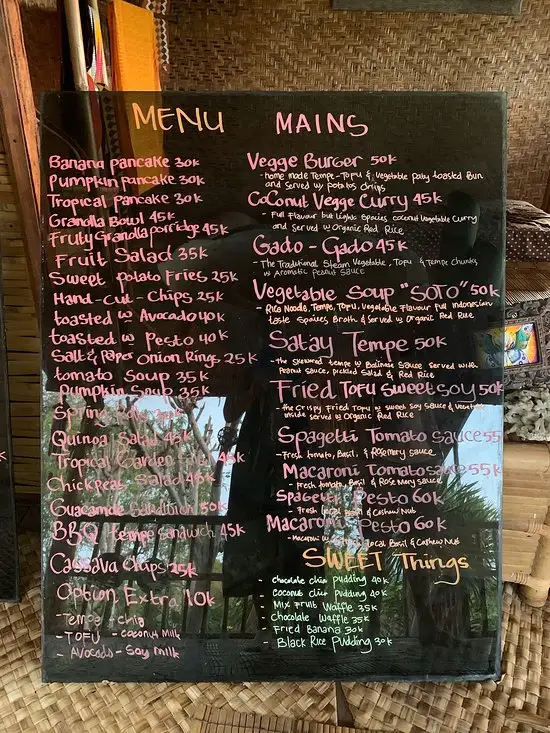 MENU
Banana pancake 30k
Pumpkin pancake 30k
Tropical pancake 30k
Granolla Bowl 45k
Fruty Granolla porridge 45k
Fruit Salad 35k
Sweet potato Fries 25k
Hand-Cut-Chips 25k
toasted w Avocado 40k
toasted w Pesto 40k
Salt & Paper Onion Rings 25k
tomato Soup 35k
Pumpkin Soup 35k
Spring
Quinoa Salad 45k
Tropical Garden 45k
Chickpeas Salad 45k
Guacamole Sandwich 50k
BBQ tempe Sandwich 45k
Cassava chips 25k
Option Extra 10k
- Tempe - chia
- TOFU - Coconut Milk
- Avocado - Soy Milk
MAINS
Vegge Burger 50k
- home made Tempe-Tofu & Vegetable paty toasted Bun
and Served w potatos chips
Coconut Vegge Curry 45k
- Full Flavour but Light Spacies coconut Vegetable Curry
and served w Organic Red Rice
Gado - Gado 45k
- The Traditional Steam Vegetable, Tofu & Tempe Chunks
w Aromatic Peanut Sauce
Vegetable Soup "SOTO" 50k
- Rice Noodle, Tempe, Tofu, Vegetable Flavour Full Indonesian
taste Spaices, Broth & Served w Organic Red Rice
Satay Tempe 50k
- the skewered tempe w Balinese Sauce served with
Peanut Sauce, pickled Salad & Red Rice
Fried Tofu Sweet Soy 50k
- the Crispy Fried Tofu w sweet Soy Sauce &
inside served w Organic Red Rice
Spagetti Tomato Sauce 55
- Fresh tomato, Basil, & Rosemery Sauce
Macaroni Tomato Sauce 55k
- Fresh tomato, Basil & Rosemary Sauce
Spagetti Pesto 60k
- Fresh Local Basil & Cashew Nut
Macaroni Pesto 60k
- Macaroni w Local Basil & Cashew Nut
SWEET Things
- chocolate chia pudding 40k
- coconut chia pudding 40k
- Mix Fruit Waffle 35k
- Chocolate Waffle 35k
- Fried Banana 30k
- Black Rice Pudding 30k